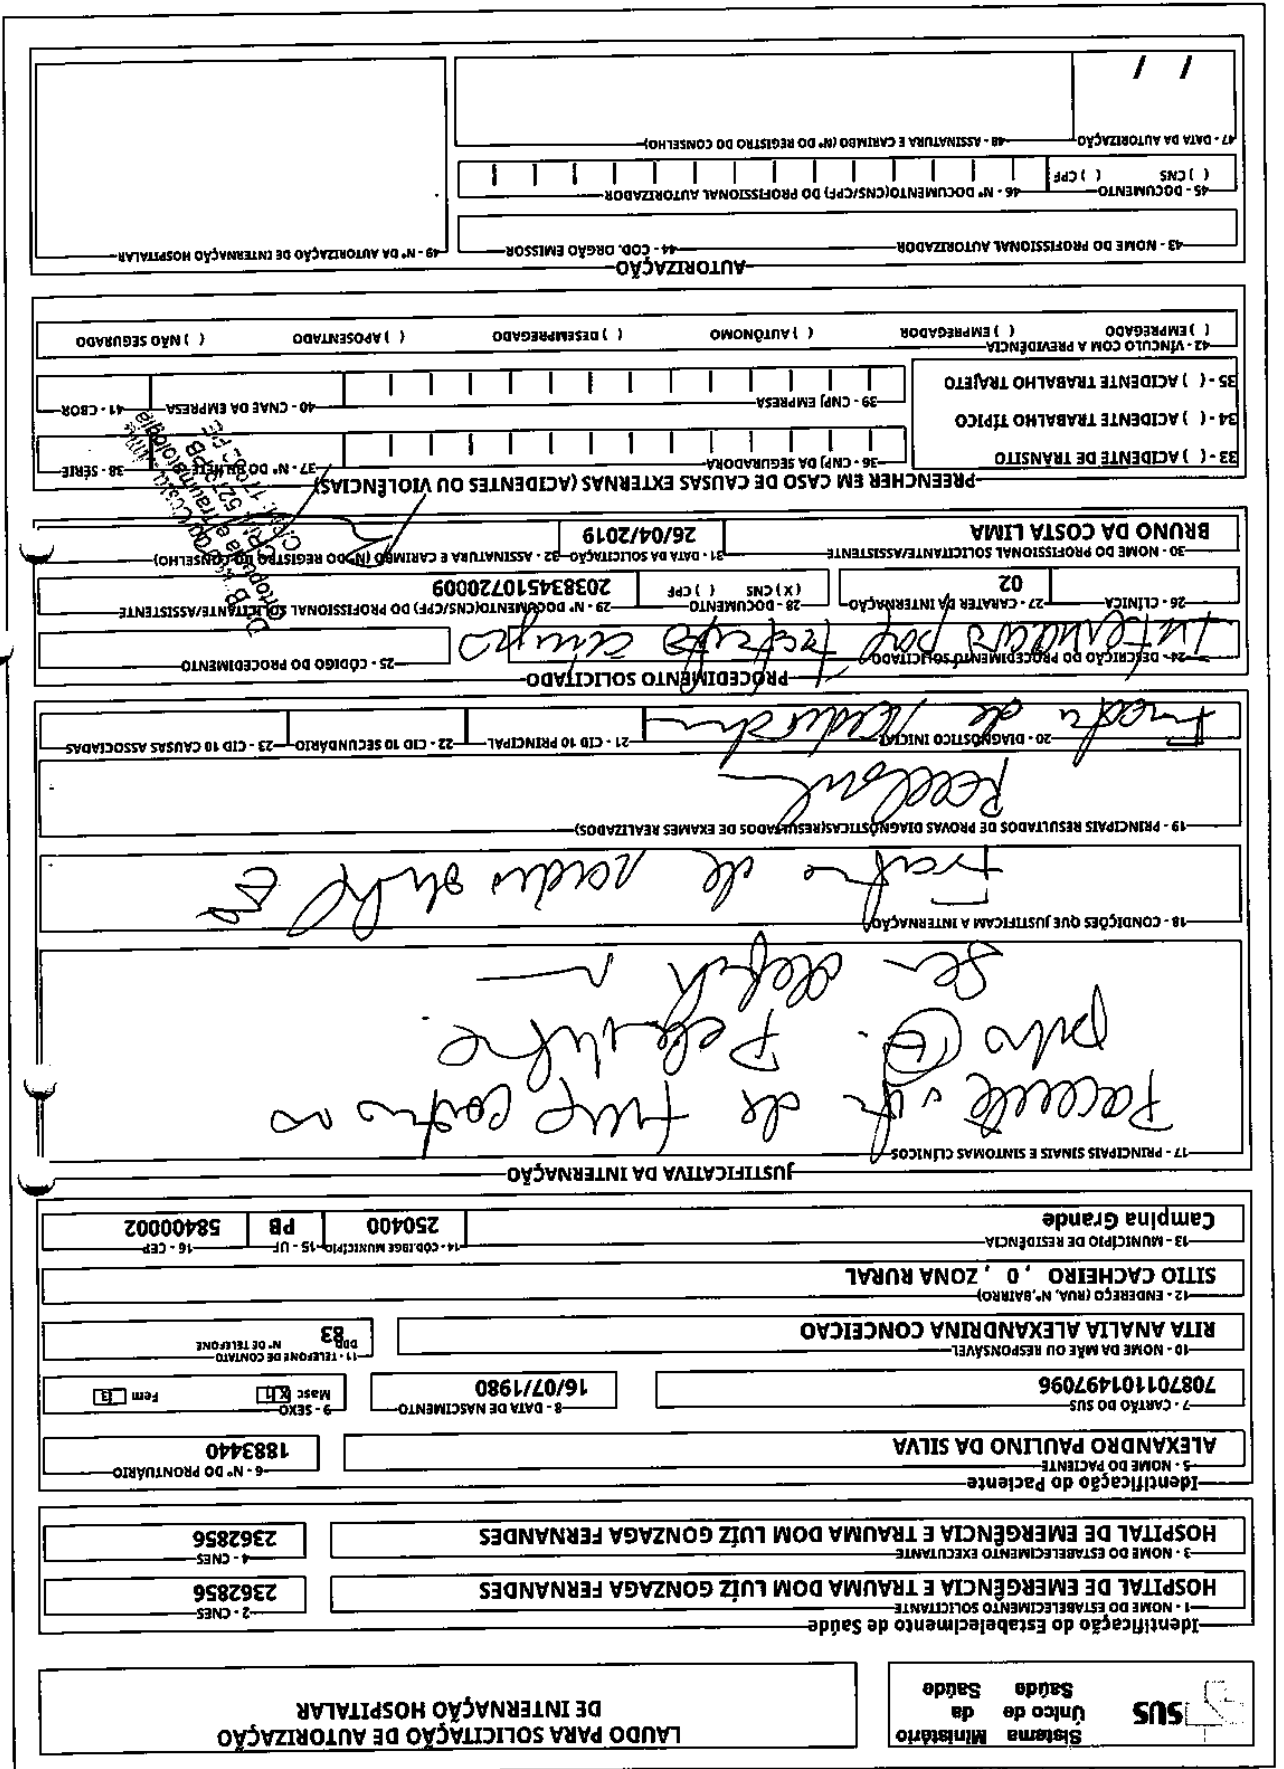 SUS
Sistema
Único de
Saúde
Ministério
da
Saúde
LAUDO PARA SOLICITAÇÃO DE AUTORIZAÇÃO
DE INTERNAÇÃO HOSPITALAR
Identificação do Estabelecimento de Saúde
1 - NOME DO ESTABELECIMENTO SOLICITANTE
HOSPITAL DE EMERGÊNCIA E TRAUMA DOM LUÍZ GONZAGA FERNANDES
2 - CNES
2362856
3 - NOME DO ESTABELECIMENTO EXECUTANTE
HOSPITAL DE EMERGÊNCIA E TRAUMA DOM LUÍZ GONZAGA FERNANDES
4 - CNES
2362856
Identificação do Paciente
5 - NOME DO PACIENTE
ALEXANDRO PAULINO DA SILVA
6 - Nº DO PRONTUÁRIO
1883440
7 - CARTÃO DO SUS
708701101497096
8 - DATA DE NASCIMENTO
16/07/1980
9 - SEXO
Masc X 1 Fem 3
10 - NOME DA MÃE OU RESPONSÁVEL
RITA ANALIA ALEXANDRINA CONCEICAO
11 - TELEFONE DE CONTATO
DDD Nº DE TELEFONE
83
12 - ENDEREÇO (RUA, Nº, BAIRRO)
SITIO CACHEIRO , 0 , ZONA RURAL
13 - MUNICÍPIO DE RESIDÊNCIA
Campina Grande
14 - CÓD.IBGE MUNICÍPIO
250400
15 - UF
PB
16 - CEP
58400002
JUSTIFICATIVA DA INTERNAÇÃO
17 - PRINCIPAIS SINAIS E SINTOMAS CLÍNICOS
Paciente de
18 - CONDIÇÕES QUE JUSTIFICAM A INTERNAÇÃO
de
19 - PRINCIPAIS RESULTADOS DE PROVAS DIAGNÓSTICAS(RESULTADOS DE EXAMES REALIZADOS)
20 - DIAGNÓSTICO INICIAL
de
21 - CID 10 PRINCIPAL
22 - CID 10 SECUNDÁRIO
23 - CID 10 CAUSAS ASSOCIADAS
PROCEDIMENTO SOLICITADO
24 - DESCRIÇÃO DO PROCEDIMENTO SOLICITADO
25 - CÓDIGO DO PROCEDIMENTO
26 - CLÍNICA
27 - CARATER DA INTERNAÇÃO
02
28 - DOCUMENTO
(X) CNS ( ) CPF
29 - Nº DOCUMENTO(CNS/CPF) DO PROFISSIONAL SOLICITANTE/ASSISTENTE
203834510720009
30 - NOME DO PROFISSIONAL SOLICITANTE/ASSISTENTE
BRUNO DA COSTA LIMA
31 - DATA DA SOLICITAÇÃO
26/04/2019
32 - ASSINATURA E CARIMBO (Nº DO REGISTRO DO CONSELHO)
PREENCHER EM CASO DE CAUSAS EXTERNAS (ACIDENTES OU VIOLÊNCIAS)
33 - ( ) ACIDENTE DE TRANSITO
34 - ( ) ACIDENTE TRABALHO TÍPICO
35 - ( ) ACIDENTE TRABALHO TRAJETO
36 - CNPJ DA SEGURADORA
37 - Nº DO BILHETE
38 - SÉRIE
39 - CNPJ EMPRESA
40 - CNAE DA EMPRESA
41 - CBOR
42 - VÍNCULO COM A PREVIDÊNCIA
( ) EMPREGADO ( ) EMPREGADOR ( ) AUTÔNOMO ( ) DESEMPREGADO ( ) APOSENTADO ( ) NÃO SEGURADO
AUTORIZAÇÃO
43 - NOME DO PROFISSIONAL AUTORIZADOR
44 - COD. ORGÃO EMISSOR
49 - Nº DA AUTORIZAÇÃO DE INTERNAÇÃO HOSPITALAR
45 - DOCUMENTO
( ) CNS ( ) CPF
46 - Nº DOCUMENTO(CNS/CPF) DO PROFISSIONAL AUTORIZADOR
47 - DATA DA AUTORIZAÇÃO
/ /
48 - ASSINATURA E CARIMBO (Nº DO REGISTRO DO CONSELHO)